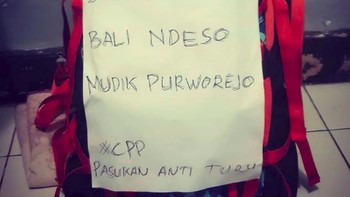 BALI NDESO
MUDIK PURWOREJO
XCPP
PASUKAN ANTI TURU